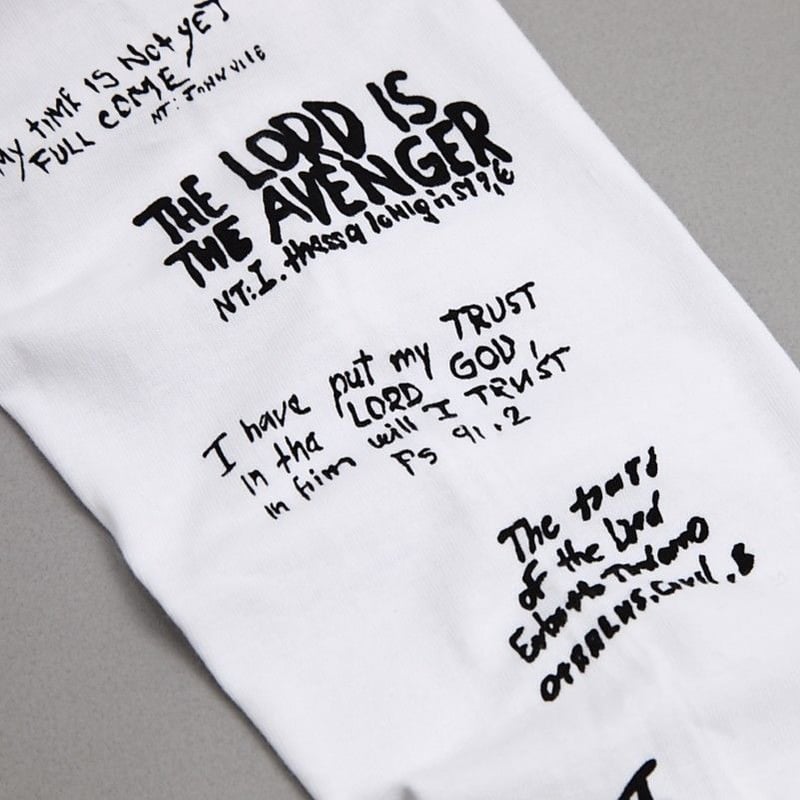 MY TIME IS NOT YET
FULL COME/
NT: JOHN VII 6
THE LORD IS
THE AVENGER
NT: I.
I have put my TRUST
in the LORD GOD,
in him will I TRUST
PS 91.2
The
of the Lord